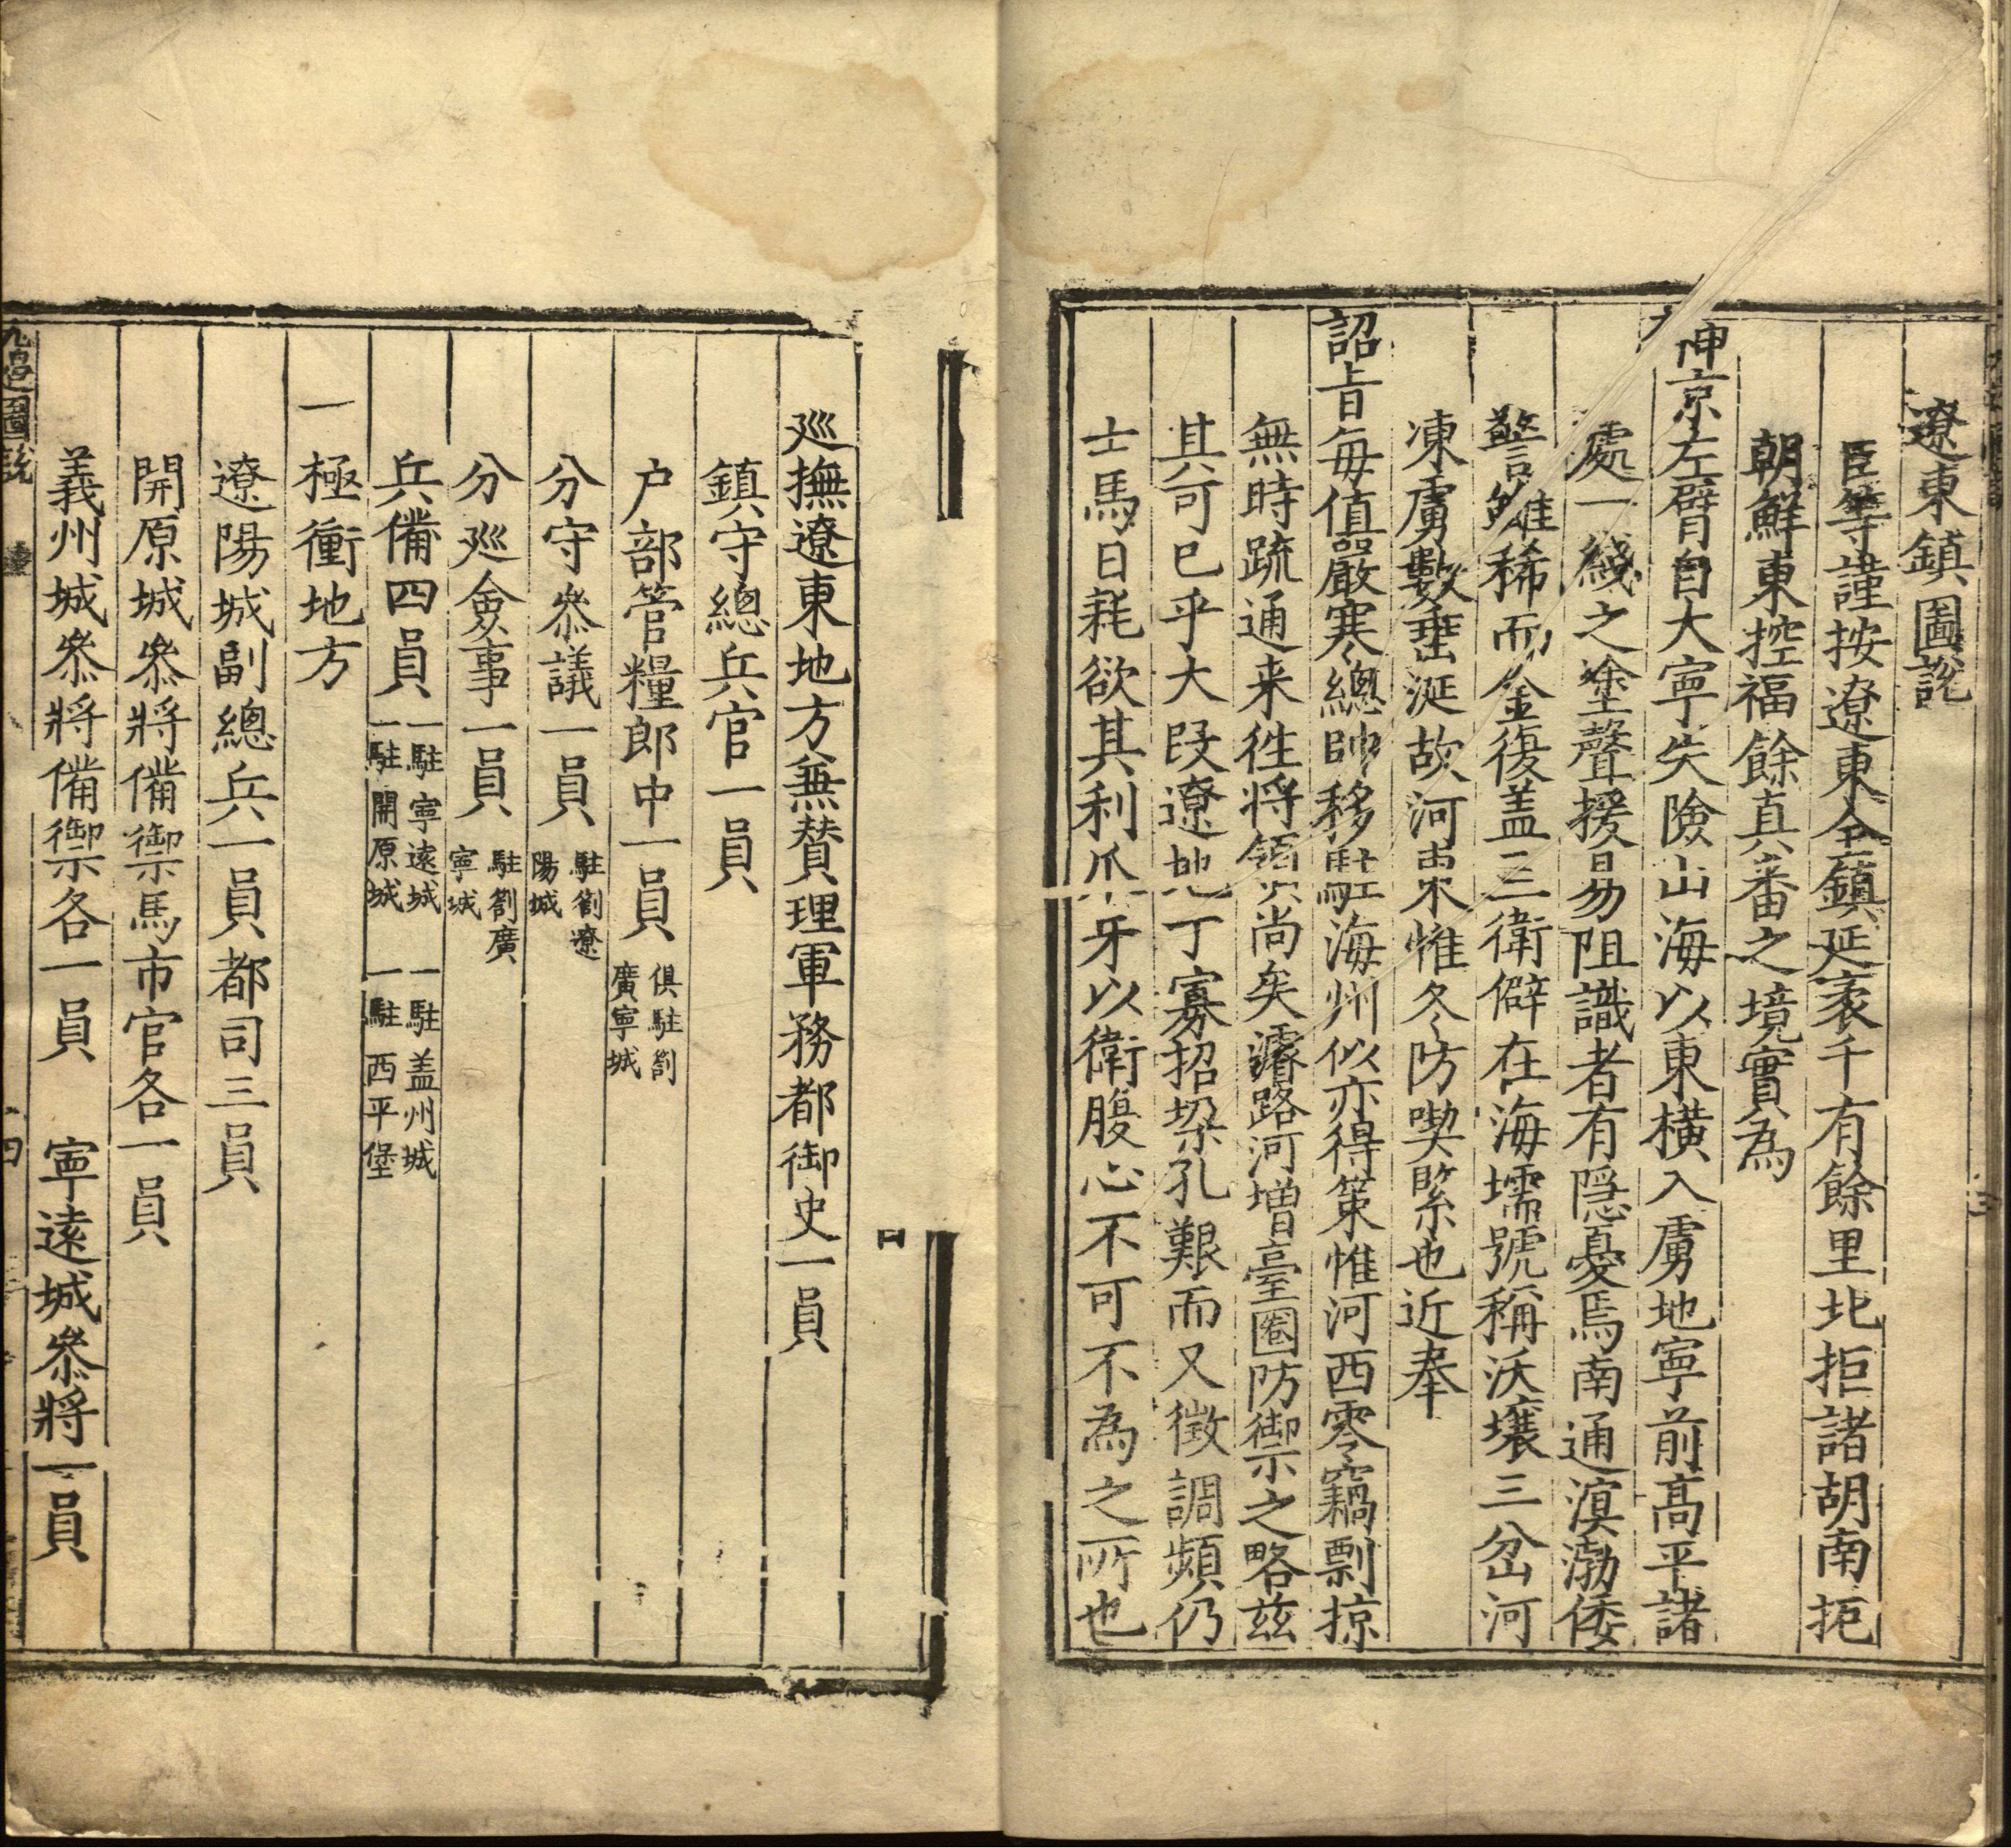 遼東鎮圖說
臣等謹按遼東全鎮延袤千有餘里北拒諸胡南扼
朝鮮東控福餘真番之境實為
神京左臂自大寧失險山海以東橫入虜地寧前高平諸
處一綫之塗聲援易阻識者有隱憂焉南通溟渤倭
警雖稀而金復盖三衛僻在海壖號稱沃壤三岔河
凍虜數垂涎故河東惟冬防喫緊也近奉
詔旨每值嚴寒總帥移駐海州似亦得策惟河西零竊剽掠
無時疏通来徃將領尚矣濬路河增臺圈防禦之略茲
其可已乎大叚遼地丁寡招垜孔艱而又徵調頻仍
士馬日耗欲其利爪牙以衛腹心不可不為之所也
廵撫遼東地方兼贊理軍務都御史一員
鎮守總兵官一員
户部管糧郎中一員 俱駐劄
廣寧城
分守叅議一員 駐劄遼
陽城
分廵僉事一員 駐劄廣
寧城
兵備四員 一駐寧遠城 一駐盖州城
一駐開原城 一駐西平堡
一極衝地方
遼陽城副總兵一員都司三員
開原城叅將備禦馬市官各一員
義州城叅將備禦各一員 寧遠城叅將一員
九邊圖說
四